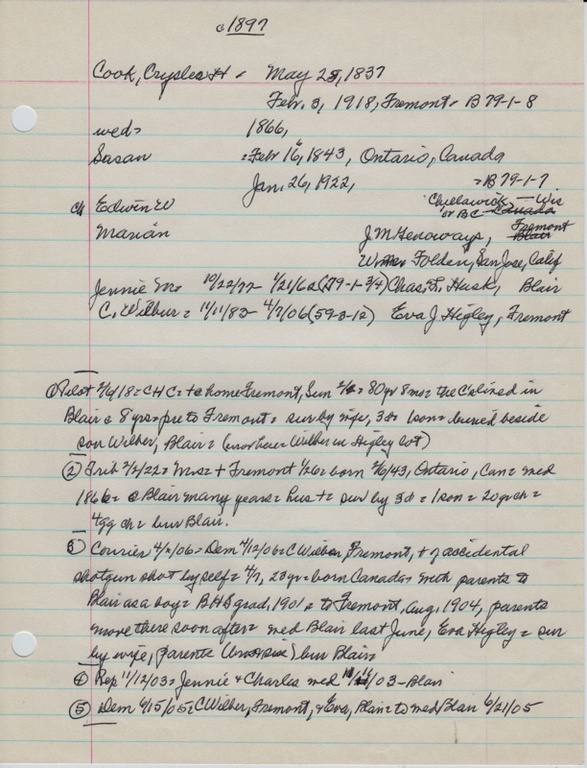 c1897
Cook, Crysler H = May 25, 1837
Feb. 3, 1918, Fremont = B 79-1-8
wed = 1866,
Susan = Feb 16, 1843, Ontario, Canada
Jan. 26, 1922, = B 79-1-7
ch Edwin W Chillawick - Wis
or BC Canada
Marian J M Genoways, Fremont Blair
Wm Folden, San Jose, Calif
Jennie M = 10/22/77 - 1/21/62 (79-1-3/4) Chas. L. Husk, Blair
C. Wilbur = 11/11/82 - 4/7/06 (59-3-12) Eva J Higley, Fremont
① Pilot 2/6/18 = C H C = + @ home Fremont, Sun = 80 yr 8 mo = the C's lived in
Blair @ 8 yrs = pre to Fremont = sur by wife, 3d 1 son = buried beside
son Wilber, Blair = (Wilber in Higley lot)
② Trib 2/2/22 = Mrs = + Fremont 1/26 = born 2/6/43, Ontario, Can = wed
1866 = @ Blair many years = hus + = sur by 3d = 1 son = 20 gr ch =
4 gg ch = bur Blair.
③ Courier 4/2/06 = Dem 4/12/06 = C Wilber, Fremont, + of accidental
shotgun shot by self = 4/7, 23 yr = born Canada = with parents to
Blair as a boy = BHS grad, 1901 = to Fremont, Aug, 1904, parents
move there soon after = wed Blair last June, Eva Higley = sur
by wife, parents bur Blair
④ Rep 11/12/03 = Jennie & Charles wed /03 - Blair
⑤ Dem 6/15/05 = C Wilber, Fremont, & Eva, Blair = to wed Blair 6/21/05